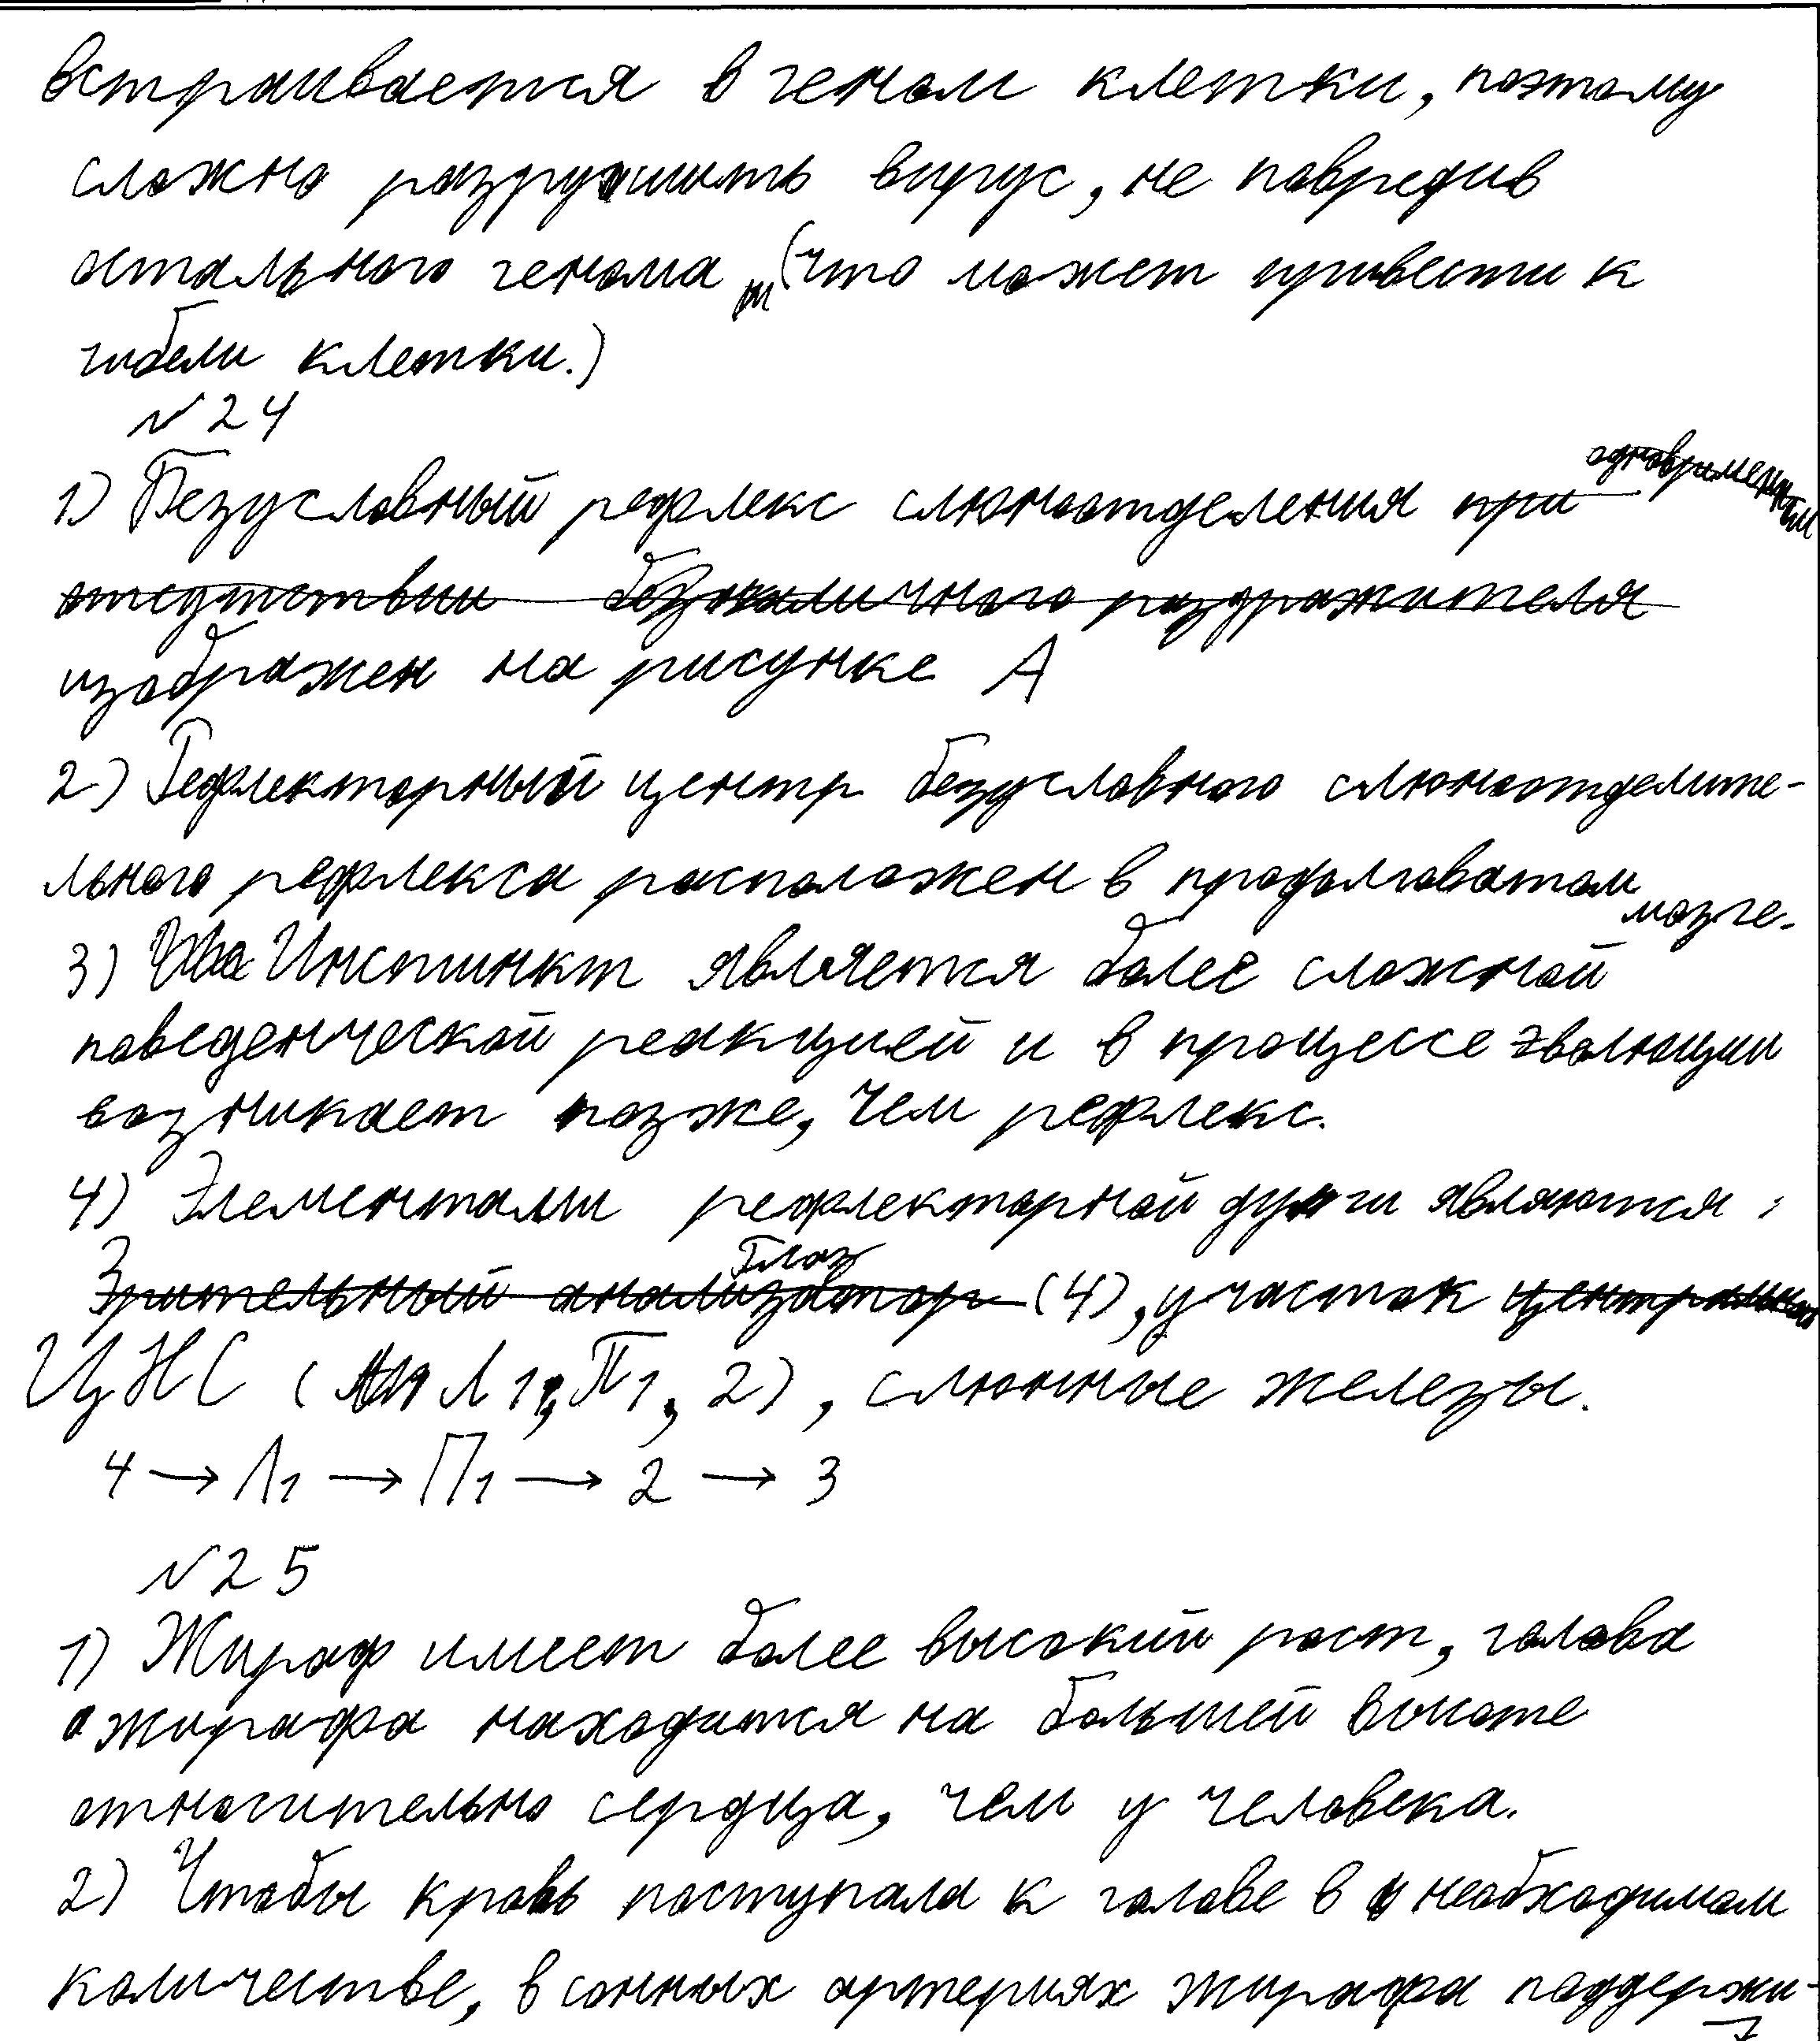 встраивается в геном клетки, поэтому
сложно разрушить вирус, не повредив
остального генома (что может привести к
гибели клетки.)
№24
1) Безусловный рефлекс слюноотделения при одновременным
отсутствии безналичного раздражителя
изображен на рисунке А
2) Рефлекторный центр безусловного слюноотделите-
льного рефлекса расположен в продолговатом
мозге.
3) Инстинкт является более сложной
поведенческой реакцией и в процессе эволюции
возникает позже, чем рефлекс.
4) Элементами рефлекторной дуги являются:
Глаз
Зрительный анализатор (4), участок
ЦНС (Л1, П1, 2), слюнные железы.
4 → Л1 → П1 → 2 → 3
№25
1) Жираф имеет более высокий рост, голова
жирафа находится на большей высоте
относительно сердца, чем у человека.
2) Чтобы кровь поступала к голове в необходимом
количестве, в сонных артериях жирафа поддержи-